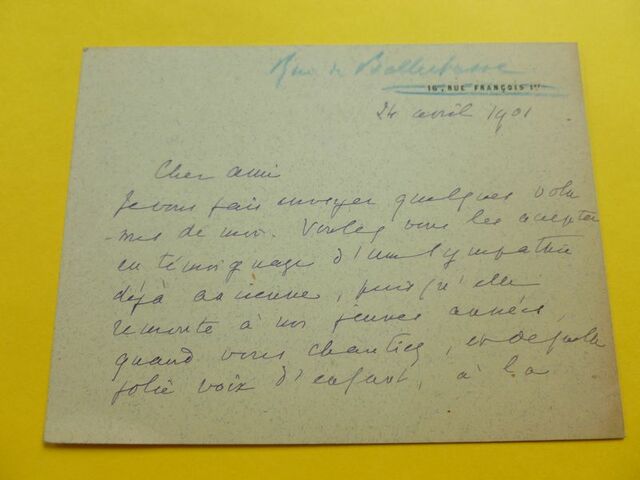 Rue de Bellechasse
16, RUE FRANÇOIS Ier
24 avril 1901
Cher ami
Je vous fais envoyer quelques volu
-mes de moi. Voulez vous les accepter
en témoignage d'une sympathie
déjà ancienne, puisqu'elle
remonte à nos jeunes années,
quand vous chantiez, de
jolie voix d'enfant, à la